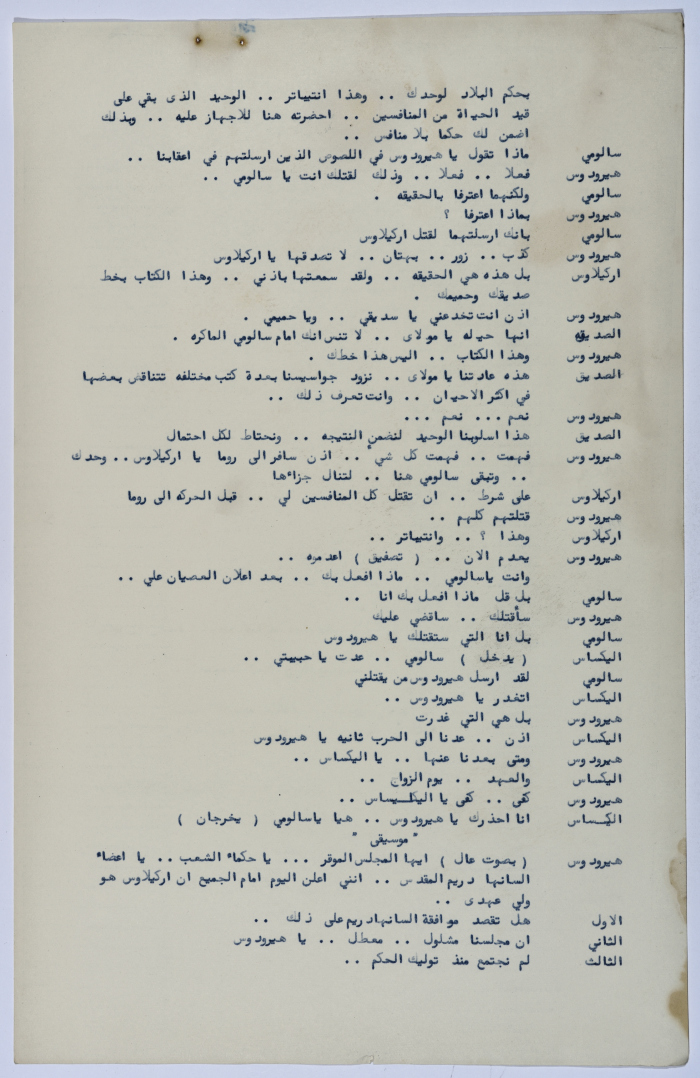 بحكم البلاد لوحدك .. وهذا انتيباتر .. الوحيد الذى بقي على
قيد الحياة من المنافسين .. احضرته هنا للاجهاز عليه .. وبذلك
اضمن لك حكما بلا منافس ..
سالومي ماذا تقول يا هيرودوس في اللصوص الذين ارسلتهم في اعقابنا ..
هيرودوس فعلا .. فعلا .. وذلك لقتلك انت يا سالومي ..
سالومي ولكنهما اعترفا بالحقيقه .
هيرودوس بماذا اعترفا ؟
سالومي بانك ارسلتهما لقتل اركيلاوس
هيرودوس كذب .. زور .. بهتان .. لا تصدقها يا اركيلاوس
اركيلاوس بل هذه هي الحقيقه .. ولقد سمعتها باذني .. وهذا الكتاب بخط
صديقك وحميمك .
هيرودوس اذن انت تخدعني يا سديقي .. ويا حميمي .
الصديقه انها حيله يا مولاى .. لا تنس انك امام سالومي الماكره .
هيرودوس وهذا الكتاب .. اليس هذا خطك .
الصديق هذه عادتنا يا مولاى .. نزود جواسيسنا بعدة كتب مختلفه تتناقض بعضها
في اكثر الاحيان .. وانت تعرف ذلك ..
هيرودوس نعم ... نعم ...
الصديق هذا اسلوبنا الوحيد لنضمن النتيجه .. ونحتاط لكل احتمال
هيرودوس فهمت .. فهمت كل شيء .. اذن سافر الى روما يا اركيلاوس .. وحدك
.. وتبقى سالومي هنا .. لتنال جزاءها
اركيلاوس على شرط .. ان تقتل كل المنافسين لي .. قبل الحركه الى روما
هيرودوس قتلتهم كلهم ..
اركيلاوس وهذا ؟ .. وانتيباتر ..
هيرودوس يعدم الان .. ( تصفيق ) اعدموه ..
وانت ياسالومي .. ماذا افعل بك .. بعد اعلان العصيان علي ..
سالومي بل قل ماذا افعل بك انا ..
هيرودوس سأقتلك .. ساقضي عليك
سالومي بل انا التي ستقتلك يا هيرودوس
اليكساس ( يدخل ) سالومي .. عدت يا حبيبتي ..
سالومي لقد ارسل هيرودوس من يقتلني
اليكساس اتغدر يا هيرودوس ..
هيرودوس بل هي التي غدرت
اليكساس اذن .. عدنا الى الحرب ثانيه يا هيرودوس
هيرودوس ومتى بعدنا عنها .. يا اليكساس ..
اليكساس والعهد .. يوم الزواج ..
هيرودوس كفى .. كفى يا اليكسياس ..
اليكساس انا احذرك يا هيرودوس .. هيا ياسالومي ( يخرجان )
" موسيقى "
هيرودوس ( بصوت عال ) ايها المجلس الموقر ... يا حكماء الشعب .. يا اعضاء
السانهادريم المقدس .. انني اعلن اليوم امام الجميع ان اركيلاوس هو
ولي عهدى ..
الاول هل تقصد موافقة السانهادريم على ذلك ..
الثاني ان مجلسنا مشلول .. معطل .. يا هيرودوس
الثالث لم نجتمع منذ توليك الحكم ..